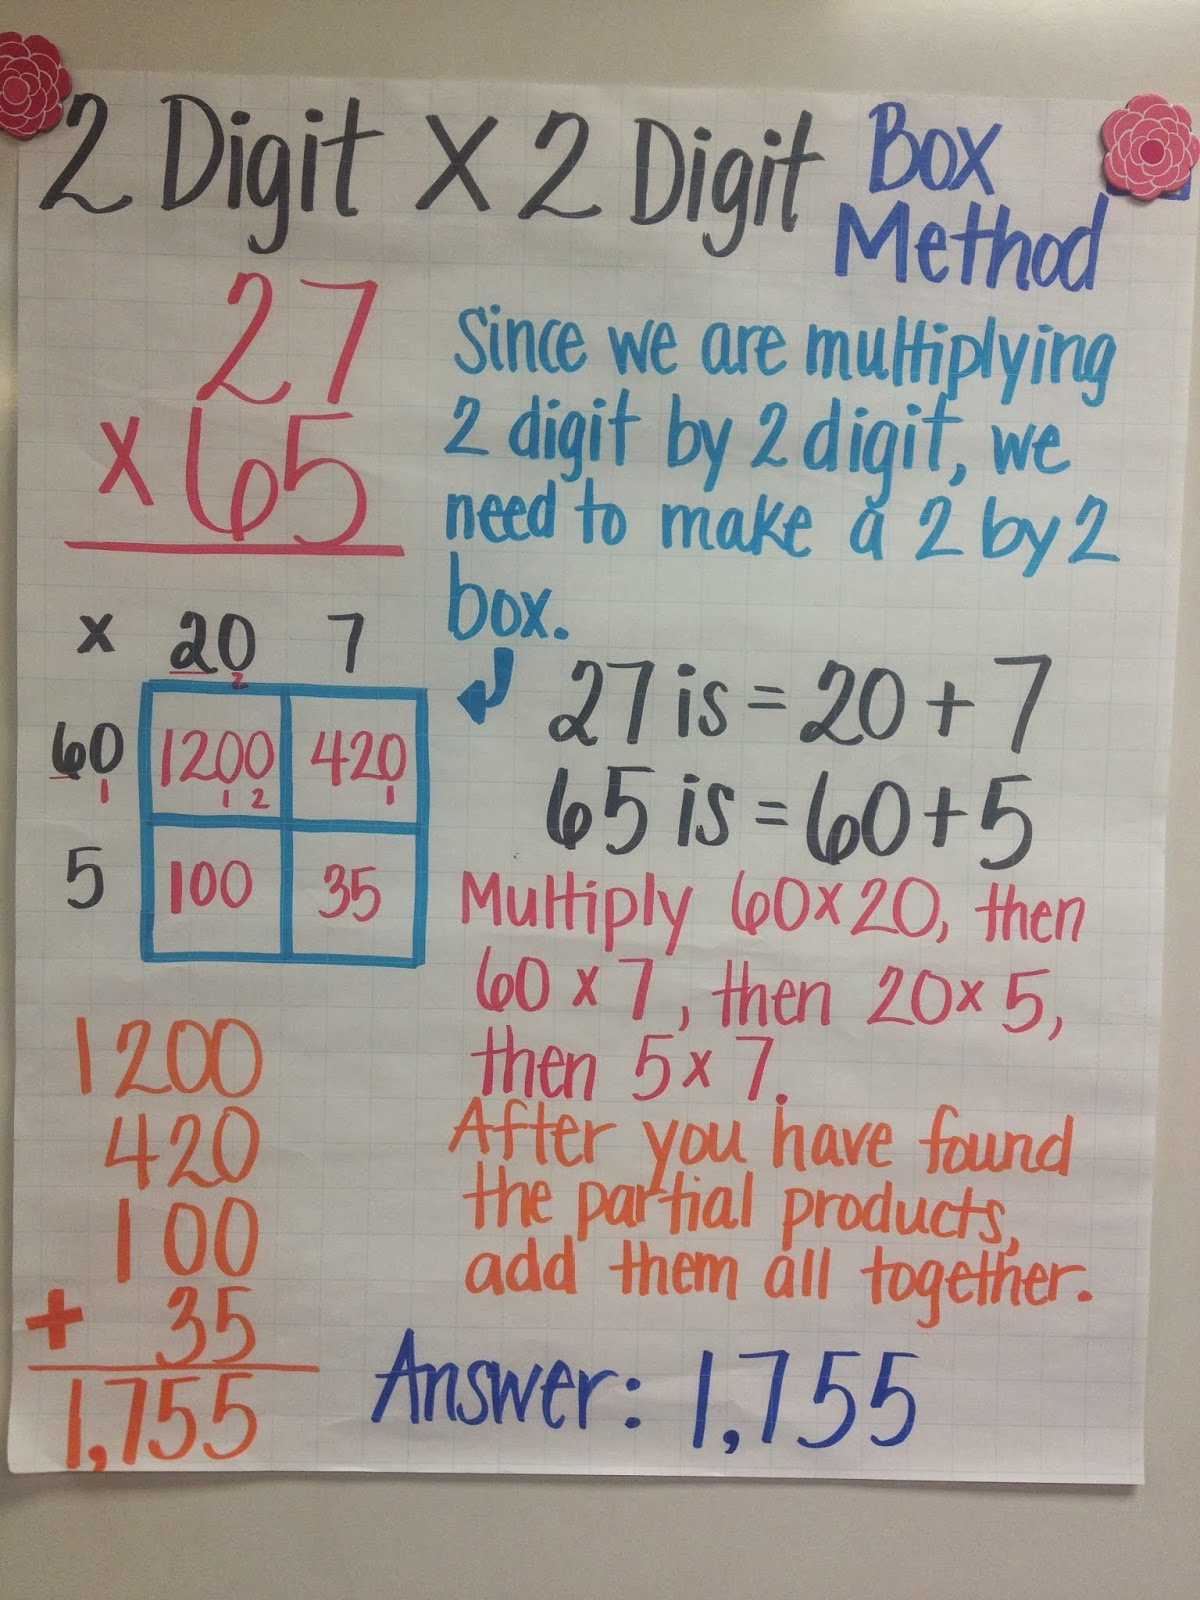 2 Digit X 2 Digit
Box
Method
27
x 65
Since we are multiplying
2 digit by 2 digit, we
need to make a 2 by 2
box.
x 20 7
2
60 1200 420
1 1 2 1
5 100 35
27 is = 20 + 7
65 is = 60 + 5
Multiply 60 x 20, then
60 x 7, then 20 x 5,
then 5 x 7.
1200
420
100
+ 35
1,755
After you have found
the partial products,
add them all together.
Answer: 1,755